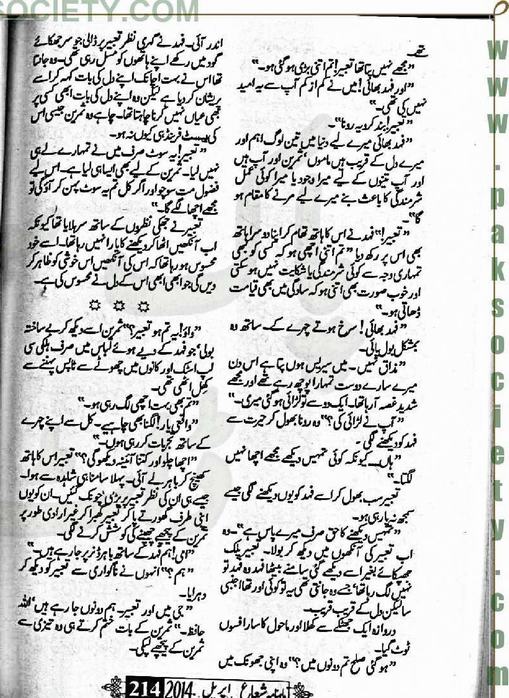 SOCIETY.COM
www.paksociety.com
تھے۔
”مجھے نہیں پتا تھا تعبیر! تم اتنی بڑی ہو گئی ہو۔“
”اور فہد بھائی! میں نے کم از کم آپ سے یہ امید
نہیں کی تھی۔“
”تعبیر! بند کرو یہ رونا۔“
”فہد بھائی میرے لیے دنیا میں تین لوگ اہم اور
میرے دل کے قریب ہیں ماموں، ثمرین اور آپ ہیں
اور آپ تینوں کے لیے میرا وجود یا میرا کوئی عمل
شرمندگی کا باعث بنے میرے لیے مرنے کا مقام ہو
گا۔“
”تعبیر!“ فہد نے اس کا ہاتھ تھام کر اپنا دوسرا ہاتھ
بھی اس پر رکھ دیا ”تم اتنی اچھی ہو کہ کسی کو کبھی
تمہاری وجہ سے کوئی شرمندگی یا شکایت نہیں ہو سکتی
اور خوب صورت بھی اتنی ہو کہ سادگی میں بھی قیامت
ڈھاتی ہو۔“
”فہد بھائی! سرخ ہوتے چہرے کے ساتھ وہ
بمشکل بول پائی۔
”مذاق نہیں۔ میں سیریس ہوں پتا ہے اس دن
میرے سارے دوست تمہارا پوچھ رہے تھے اور مجھے
شدید غصہ آ رہا تھا۔ ایک دو سے تو لڑائی ہو گئی میری۔“
”آپ نے لڑائی کی؟“ وہ رونا بھول کر حیرت سے
فہد کو دیکھنے لگی۔
”ہاں۔ کیونکہ کوئی تمہیں دیکھے مجھے اچھا نہیں
لگتا۔“
تعبیر سب بھول کر اسے فہد کو یوں دیکھنے لگی جیسے
سمجھ نہ پا رہی ہو۔
”تمہیں دیکھنے کا حق صرف میرے پاس ہے“۔ وہ
اب تعبیر کی آنکھوں میں دیکھ کر بولا۔ تعبیر پلک
جھپکائے بغیر اسے دیکھے گئی سامنے بیٹھا فہد وہ فہد تو
نہیں لگ رہا تھا جسے وہ جانتی تھی یہ تو کوئی اور تھا اجنبی
سا لیکن دل کے قریب قریب۔
دروازہ ایک جھٹکے سے کھلا اور ماحول کا سارا فسوں
ٹوٹ گیا۔
”ہو گئی صلح تم دونوں میں؟“ وہ اپنی جھونک میں
اندر آئی۔ فہد نے گہری نظر تعبیر پر ڈالی جو سر جھکائے
گود میں رکھے اپنے ہاتھوں کو مسل رہی تھی۔ وہ جانتا
تھا اس نے بہت اچانک اپنے دل کی بات کہہ کر اسے
پریشان کر دیا ہے لیکن وہ اپنے دل کی بات ابھی کسی پر
بھی عیاں نہیں کرنا چاہتا تھا۔ چاہے وہ ثمرین جیسی اس
کی بیسٹ فرینڈ ہی کیوں نہ ہو۔
”تعبیر! یہ سوٹ صرف میں نے تمہارے لیے ہی
نہیں لیا۔ ثمرین کے لیے بھی ایسا ہی لیا ہے۔ اس لیے
فضول مت سوچو اور اگر کل تم یہ سوٹ پہن کر آؤ گی تو
مجھے اچھا لگے گا۔“
تعبیر نے جھکی نظروں کے ساتھ سر ہلایا تھا کیونکہ
اب آنکھیں اٹھا کر دیکھنے کا یارا نہیں رہا تھا۔ اسے خود
محسوس ہو رہا تھا کہ اس کی آنکھیں اس خوشی کو ظاہر کر
دیں گی جو ابھی ابھی اس کے دل نے محسوس کی ہے۔
✡ ✡ ✡
”واؤ! یہ تم ہو تعبیر؟“ ثمرین اسے دیکھ کر بے ساختہ
بولی“ جو فہد کے دیے ہوئے لباس میں صرف ہلکی سی
لپ اسٹک اور کانوں میں چھوٹے سے ٹاپس پہننے سے
کھل اٹھی تھی۔
”تم بھی بہت اچھی لگ رہی ہو۔“
”واقعی یار! لگنا بھی چاہیے۔ کل سے اپنے چہرے
کے ساتھ تجربات کر رہی ہوں۔“
”اچھا چلو اور کتنا آئینہ دیکھو گی؟“ تعبیر اس کا ہاتھ
کھینچ کر باہر لے آئی۔ پہلا سامنا ہی شاہدہ سے ہوا۔
جیسے ہی ان کی نظر تعبیر پر پڑی چونک گئیں۔ ان کو یوں
اپنی طرف گھورتے پا کر تعبیر گھبرا کر غیر ارادی طور پر
ثمرین کے پیچھے چھپنے کی کوشش کرنے لگی۔
”امی! ہم فہد کے ساتھ باہر ڈنر پر جا رہے ہیں۔“
”ہم؟“ انہوں نے ناگواری سے تعبیر کو دیکھ کر
دہرایا۔
”جی میں اور تعبیر۔ ہم دونوں جا رہے ہیں“ اللہ
حافظ۔“ ثمرین کے بات ختم کرتے ہی وہ تیزی سے
ثمرین کے پیچھے لپکی۔
ماہنامہ شعاع اپریل 2014 214